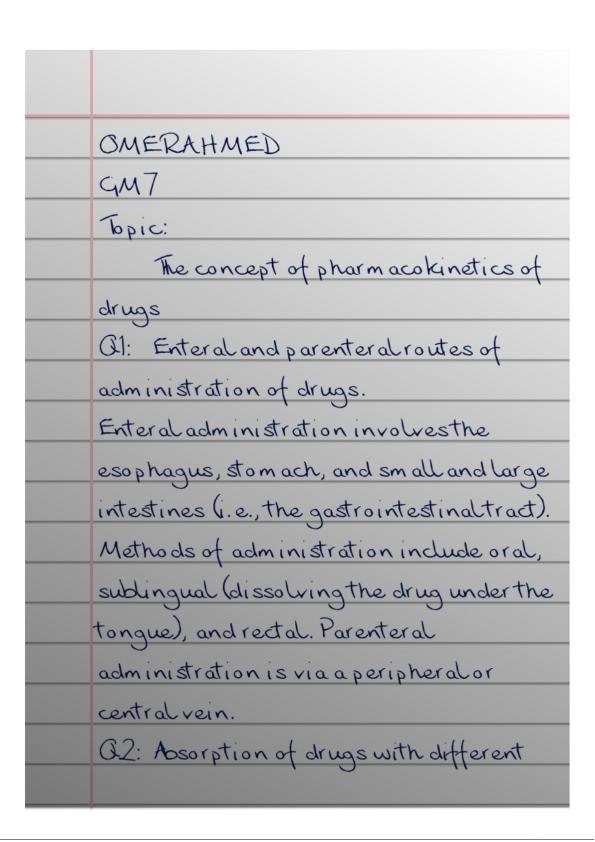 OMERAHMED
GM7
Topic:
The concept of pharmacokinetics of
drugs
Q1: Enteral and parenteral routes of
administration of drugs.
Enteral administration involves the
esophagus, stomach, and small and large
intestines (i.e., the gastrointestinal tract).
Methods of administration include oral,
sublingual (dissolving the drug under the
tongue), and rectal. Parenteral
administration is via a peripheral or
central vein.
Q2: Absorption of drugs with different